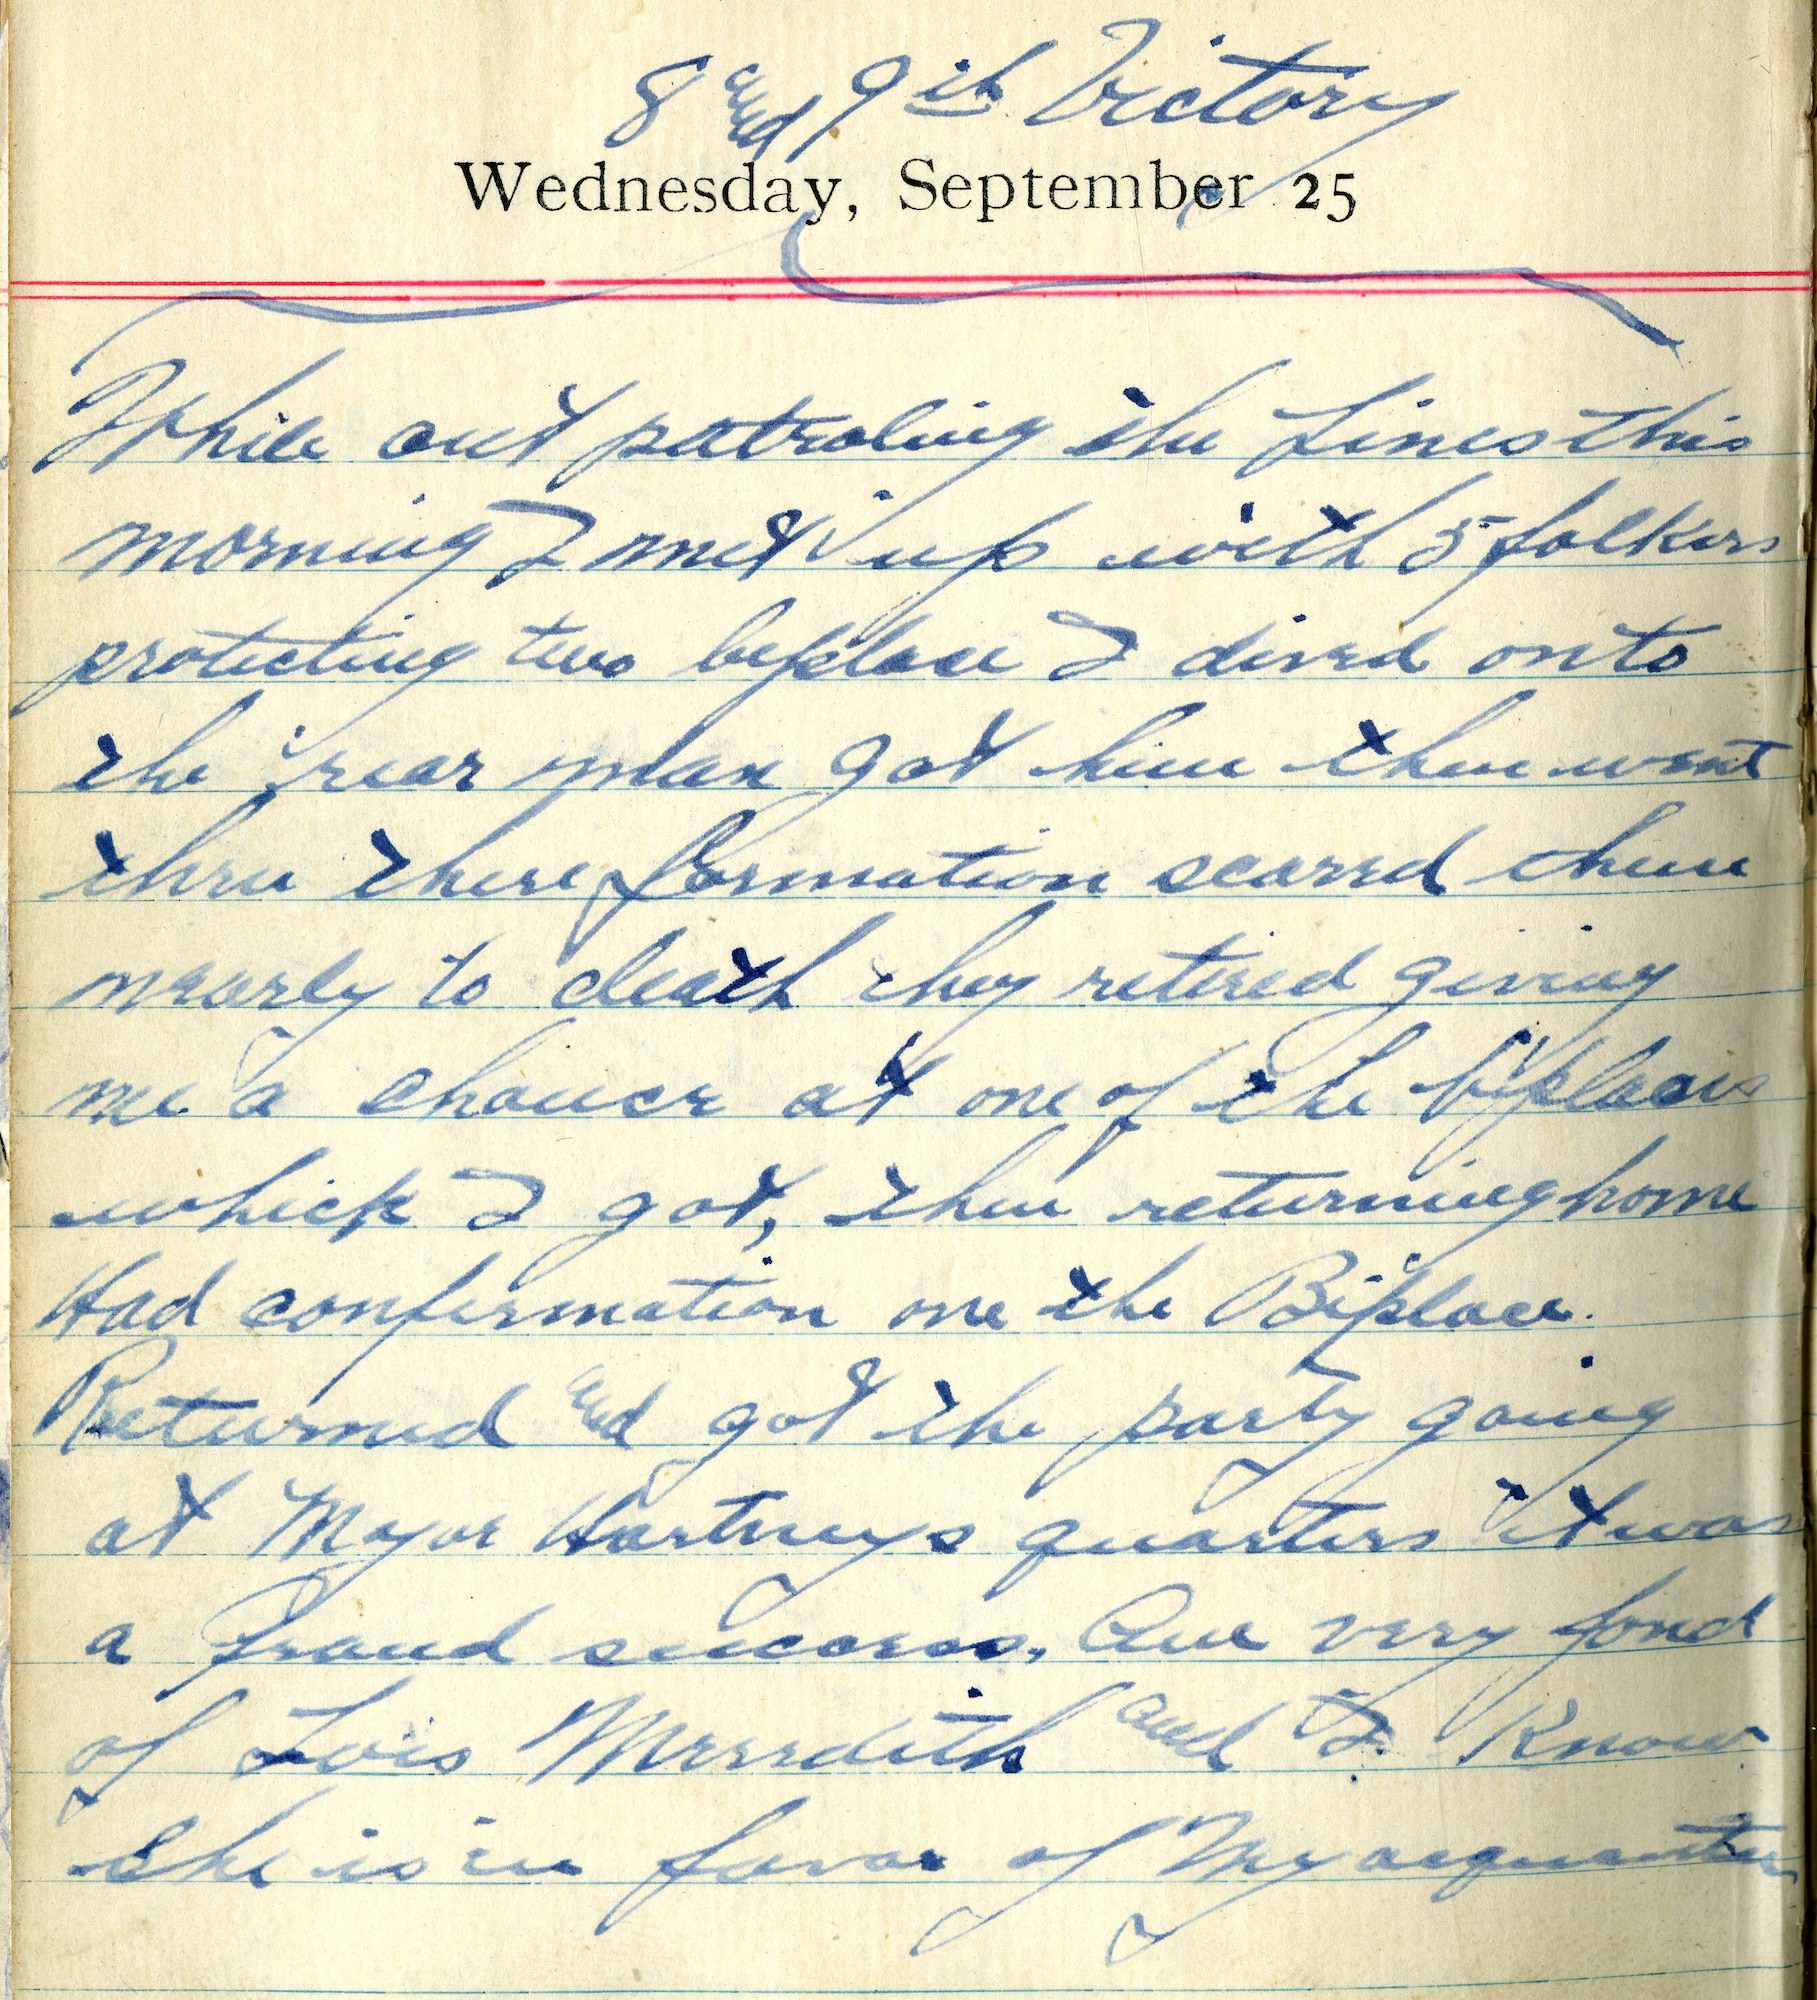 8 and 9th Victory
Wednesday, September 25
While out patroling the Lines this
morning I met up with 5 folkers
protecting two biplace I dived onto
the rear man got him then went
thru there formation scared them
nearly to death they retired giving
me a chance at one of the biplaces
which I got, then returning home
Had confirmation one the Biplace.
Returned and got the party going
at Major Hartneys quarters it was
a Grand success. Am very fond
of Lois Meredith and I know
She is in favor of My